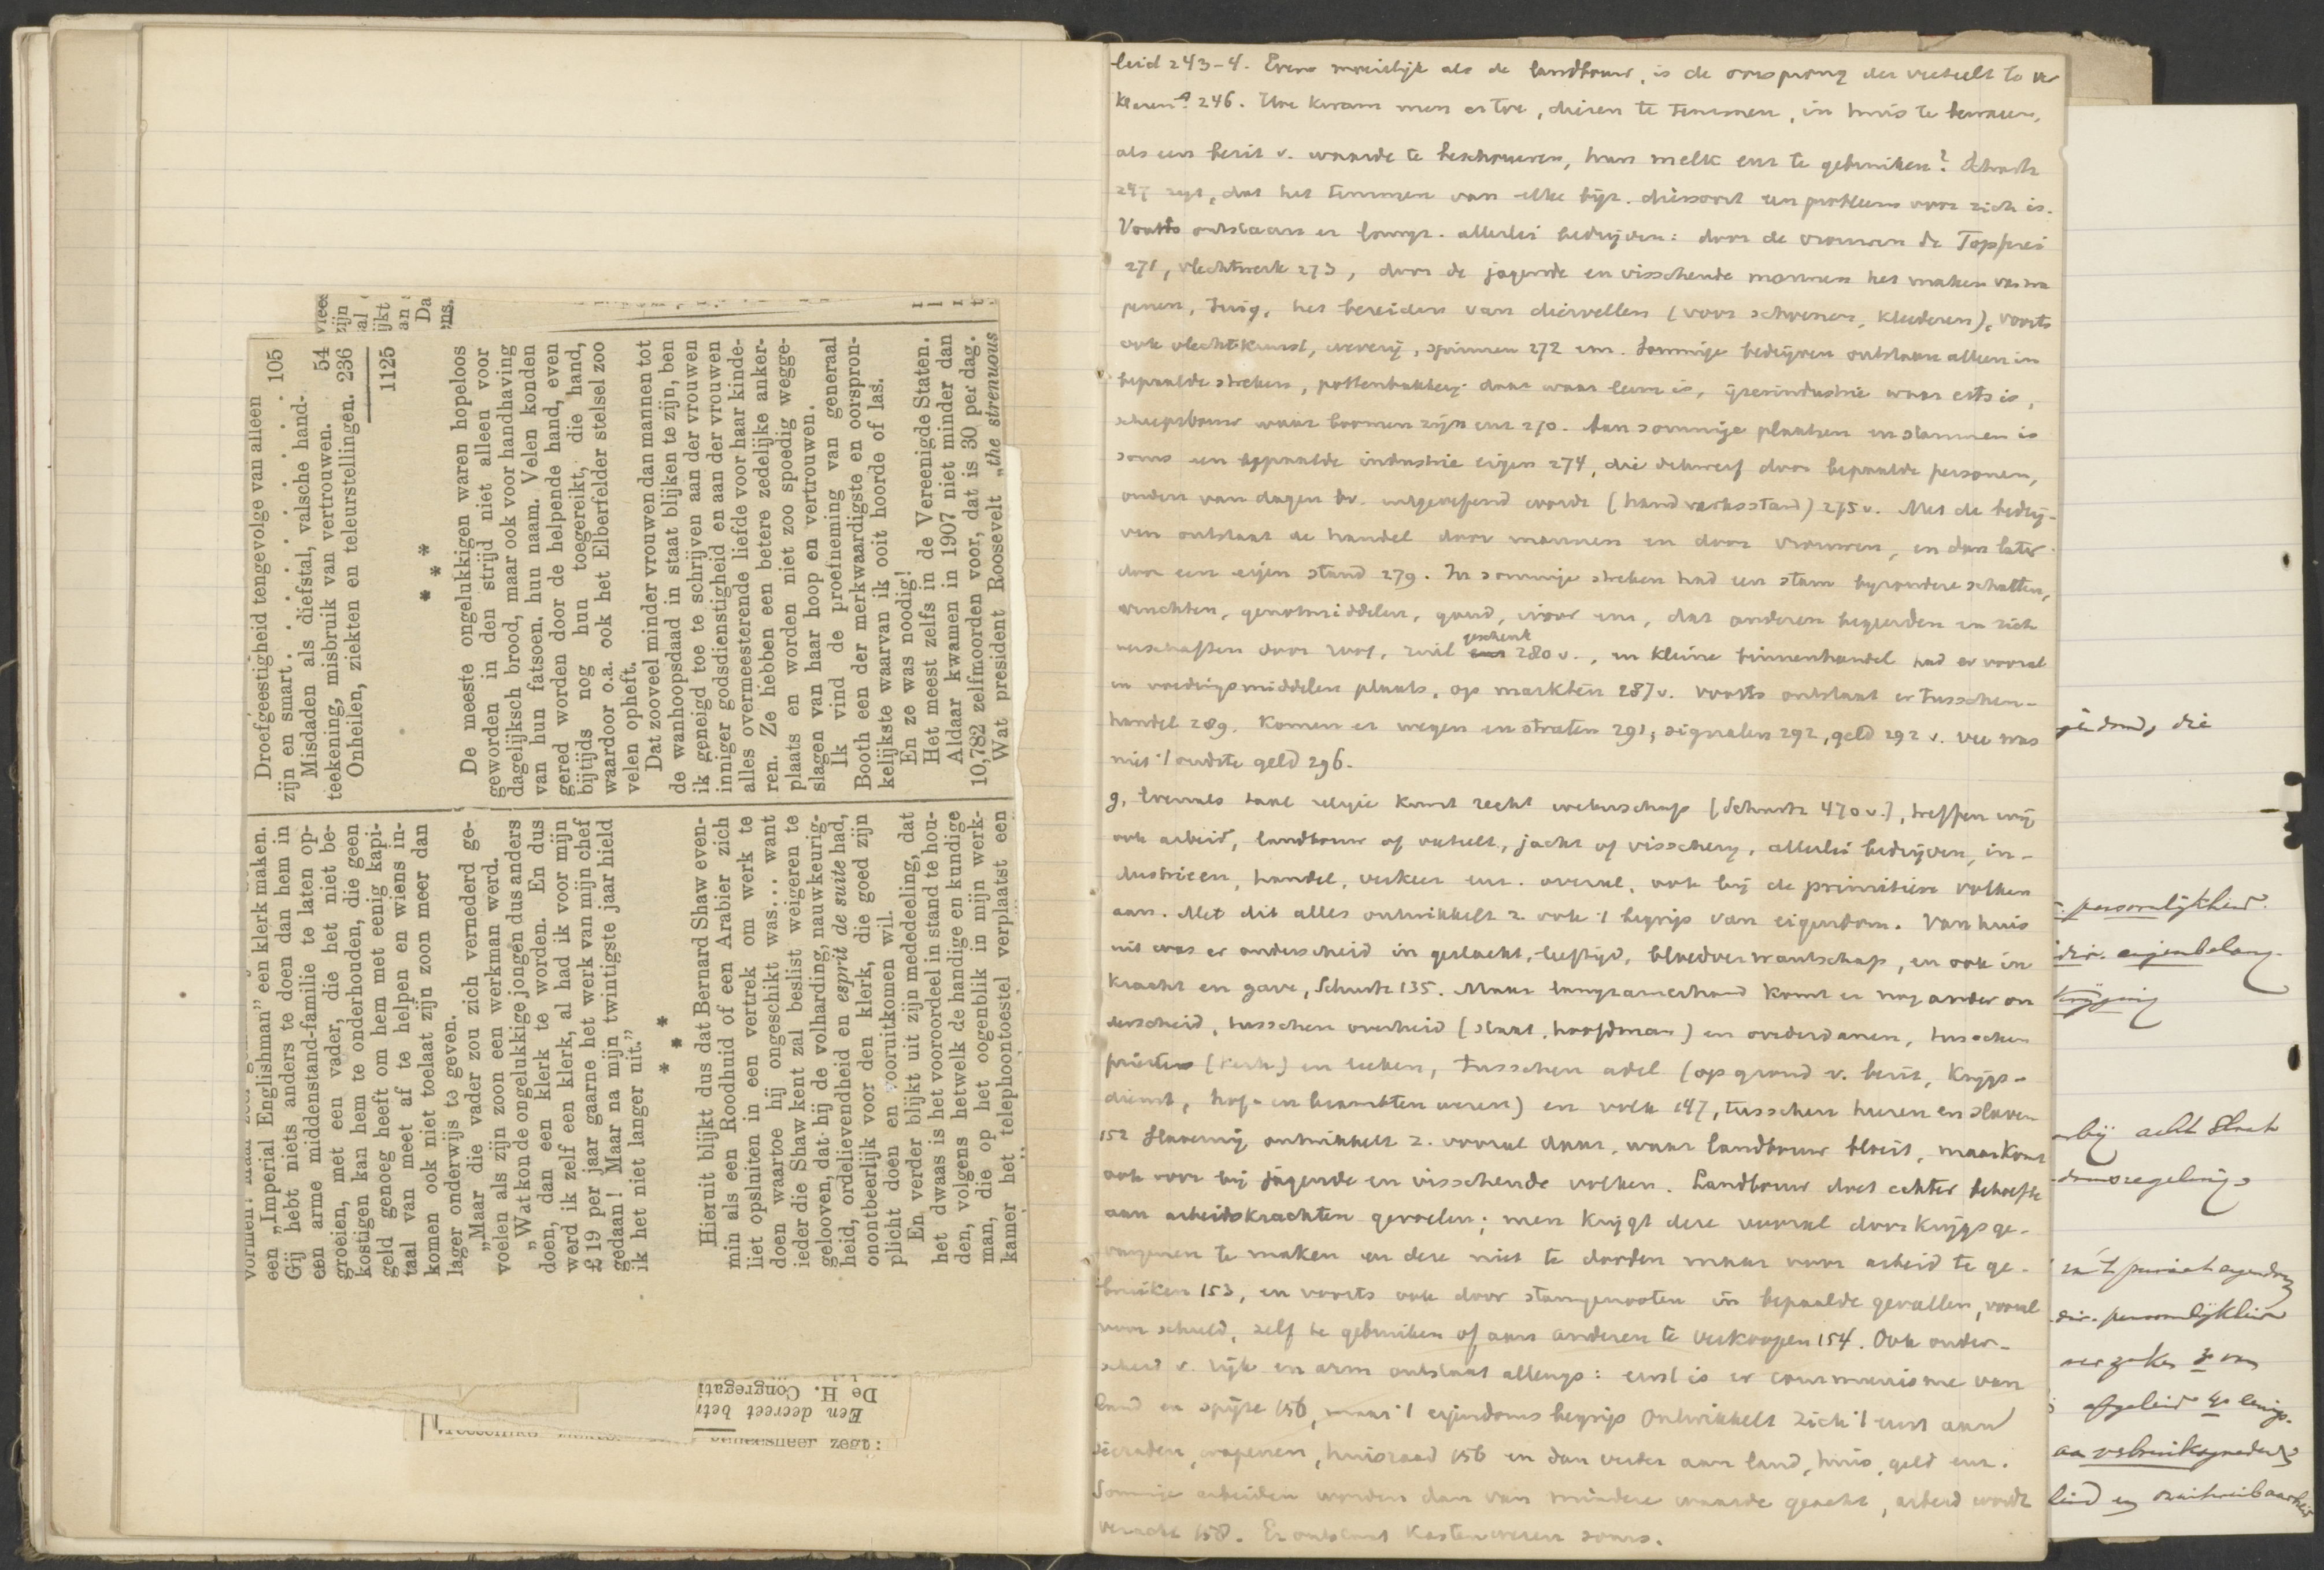 vormen? maar zeer
een „Imperial Englishman” een klerk maken.
Gij hebt niets anders te doen dan hem in
een arme middenstand-familie te laten op-
groeien, met een vader, die het niet be-
kostigen kan hem te onderhouden, die geen
geld genoeg heeft om hem met eenig kapi-
taal van meet af te helpen en wiens in-
komen ook niet toelaat zijn zoon meer dan
lager onderwijs te geven.
„Maar die vader zou zich vernederd ge-
voelen als zijn zoon een werkman werd.
„Wat kon de ongelukkige jongen dus anders
doen, dan een klerk te worden. En dus
werd ik zelf een klerk, al had ik voor mijn
£ 19 per jaar gaarne het werk van mijn chef
gedaan! Maar na mijn twintigste jaar hield
ik het niet langer uit.”
* * *
Hieruit blijkt dus dat Bernard Shaw even-
min als een Roodhuid of een Arabier zich
liet opsluiten in een vertrek om werk te
doen waartoe hij ongeschikt was... want
ieder die Shaw kent zal beslist weigeren te
gelooven, dat hij de volharding, nauwkeurig-
heid, ordelievendheid en esprit de suite had,
onontbeerlijk voor den klerk, die goed zijn
plicht doen en vooruitkomen wil.
En verder blijkt uit zijn mededeeling, dat
het dwaas is het vooroordeel in stand te hou-
den, volgens hetwelk de handige en kundige
man, die op het oogenblik in mijn werk-
kamer het telephoontoestel verplaatst een
Droefgeestigheid tengevolge van alleen
zijn en smart . . . . . . . . 105
Misdaden als diefstal, valsche hand-
teekening, misbruik van vertrouwen. 54
Onheilen, ziekten en teleurstellingen. 236
1125
* * *
De meeste ongelukkigen waren hopeloos
geworden in den strijd niet alleen voor
dagelijksch brood, maar ook voor handhaving
van hun fatsoen, hun naam. Velen konden
gered worden door de helpende hand, even
bijtijds nog hun toegereikt, die hand,
waardoor o.a. ook het Elberfelder stelsel zoo
velen opheft.
Dat zooveel minder vrouwen dan mannen tot
de wanhoopsdaad in staat blijken te zijn, ben
ik geneigd toe te schrijven aan der vrouwen
inniger godsdienstigheid en aan der vrouwen
alles overmeesterende liefde voor haar kinde-
ren. Ze hebben een betere zedelijke anker-
plaats en worden niet zoo spoedig wegge-
slagen van haar hoop en vertrouwen.
Ik vind de proefneming van generaal
Booth een der merkwaardigste en oorspron-
kelijkste waarvan ik ooit hoorde of las.
En ze was noodig!
Het meest zelfs in de Vereenigde Staten.
Aldaar kwamen in 1907 niet minder dan
10,782 zelfmoorden voor, dat is 30 per dag.
Wat president Roosevelt „the strenuous
vleec
zijn
al
ijkt
an
Da
ens.
De H. Congregati
Een decreet betr
zegt:
leid 243-4. Even moeilijk als de landbouw, is de oorsprong der veeteelt te ver
klaren 246. Hoe kwam men er toe, dieren te temmen, in huis te bewaren,
als een bezit v. waarde te beschouwen, hun melk enz te gebruiken? Schurtz
247 zegt, dat het temmen van elke byz. diersoort een probleem voor zich is.
Voorts ontstaan er langz. allerlei bedrijven: door de vrouwen de Topferei
271, vlechtwerk 273, door de jagende en visschende mannen het maken van wa
penen, tuig, het bereiden van diervellen (voor schoenen, kleederen), voorts
ook vlechtkunst, weverij, spinnen 272 enz. Sommige bedrijven ontstaan alleen in
bepaalde streken, pottenbakkerij daar waar leem is, ijzerindustrie waar erts is,
scheepsbouw waar boomen zijn enz 270. Aan sommige plaatsen en stammen is
soms een bepaalde industrie eigen 274, die dikwerf door bepaalde personen,
ouden van dagen bv. uitgeoefend wordt (handwerksstand) 275 v. Met de bedrij-
ven ontstaat de handel door mannen en door vrouwen, en dan later
door een eigen stand 279. In sommige streken had een stam byzondere schatten,
vruchten, genotmiddelen, goud, ivoor enz, dat anderen begeerden en zich
verschaften door roof, ruil geschenk 280 v., en kleine binnenhandel had er vooral
in voedingsmiddelen plaats, op markten 287 v. voorts ontstaat er tusschen-
handel 289. Komen er wegen en straten 291, signalen 292, geld 292 v. vee was
niet 't oudste geld 296.
9, Evenals taal religie kunst recht wetenschap (Schurtz 470 v.), treffen wij
ook arbeid, landbouw of veeteelt, jacht of visschery, allerlei bedrijven, in-
dustrieen, handel, verkeer enz. overal, ook bij de primitieve volken
aan. Met dit alles ontwikkelt z. ook 't begrip van eigendom. Van huis
uit was er onderscheid in geslacht, leeftijd, bloedverwantschap, en ook in
kracht en gave, Schurtz 135. Maar langzamerhand komt er nog ander on
derscheid, tusschen overheid (staat, hoofdman) en onderdanen, tusschen
priesters (kerk) en leeken, tusschen adel (op grond v. bezit, krijgs-
dienst, hof- en beambten wezen) en volk 147, tusschen heeren en slaven
152 Slavernij ontwikkelt z. vooral daar, waar landbouw bloeit, maar komt
ook voor bij jagende en visschende volken. Landbouw doet echter behoefte
aan arbeidskrachten gevoelen; men krijgt deze vooral door krijgsge-
vangenen te maken en deze niet te dooden maar voor arbeid te ge-
bruiken 153, en voorts ook door stamgenooten in bepaalde gevallen, vooral
voor schuld, zelf te gebruiken of aan anderen te verkoopen 154. Ook onder-
scheid v. rijk en arm ontstaat allengs: eerst is er communisme van
land en spijze 156, maar 't eigendoms begrip ontwikkelt zich 't eerst aan
sieraden, wapenen, huisraad 156 en dan verder aan land, huis, geld enz.
Sommige arbeiden worden dan van mindere waarde geacht, arbeid wordt
veracht 158. Er ontstaat Kastenwezen soms.
die
persoonlijkheid.
eigenbelang
krijging
bij acht
domsregeling
in 't privaat eigendom
persoonlijkheid
afgeleid
verbruiksgoederen